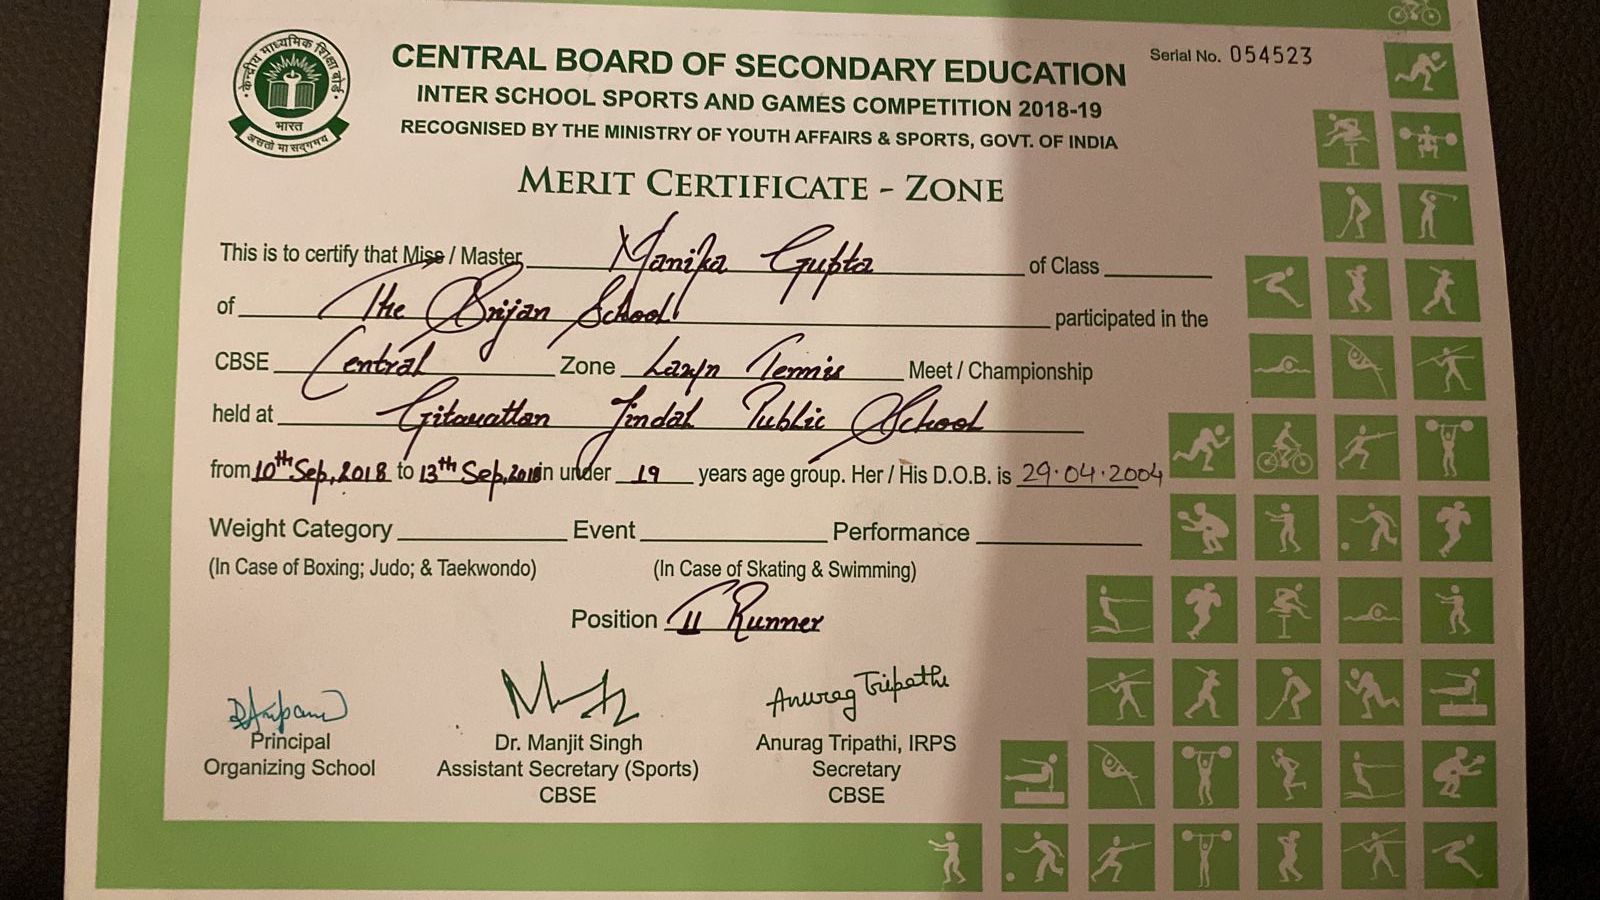 केन्द्रीय माध्यमिक शिक्षा बोर्ड
भारत
असतो मा सद्गमय
Serial No. 054523
CENTRAL BOARD OF SECONDARY EDUCATION
INTER SCHOOL SPORTS AND GAMES COMPETITION 2018-19
RECOGNISED BY THE MINISTRY OF YOUTH AFFAIRS & SPORTS, GOVT. OF INDIA
MERIT CERTIFICATE - ZONE
This is to certify that Miss / Master Manika Gupta of Class
of The Srijan School participated in the
CBSE Central Zone Lawn Tennis Meet / Championship
held at Gitarattan Jindal Public School
from 10th Sep, 2018 to 13th Sep, 2018 in under 19 years age group. Her / His D.O.B. is 29.04.2004
Weight Category Event Performance
(In Case of Boxing; Judo; & Taekwondo) (In Case of Skating & Swimming)
Position II Runner
Anurag Tripathi
Principal
Organizing School
Dr. Manjit Singh
Assistant Secretary (Sports)
CBSE
Anurag Tripathi, IRPS
Secretary
CBSE